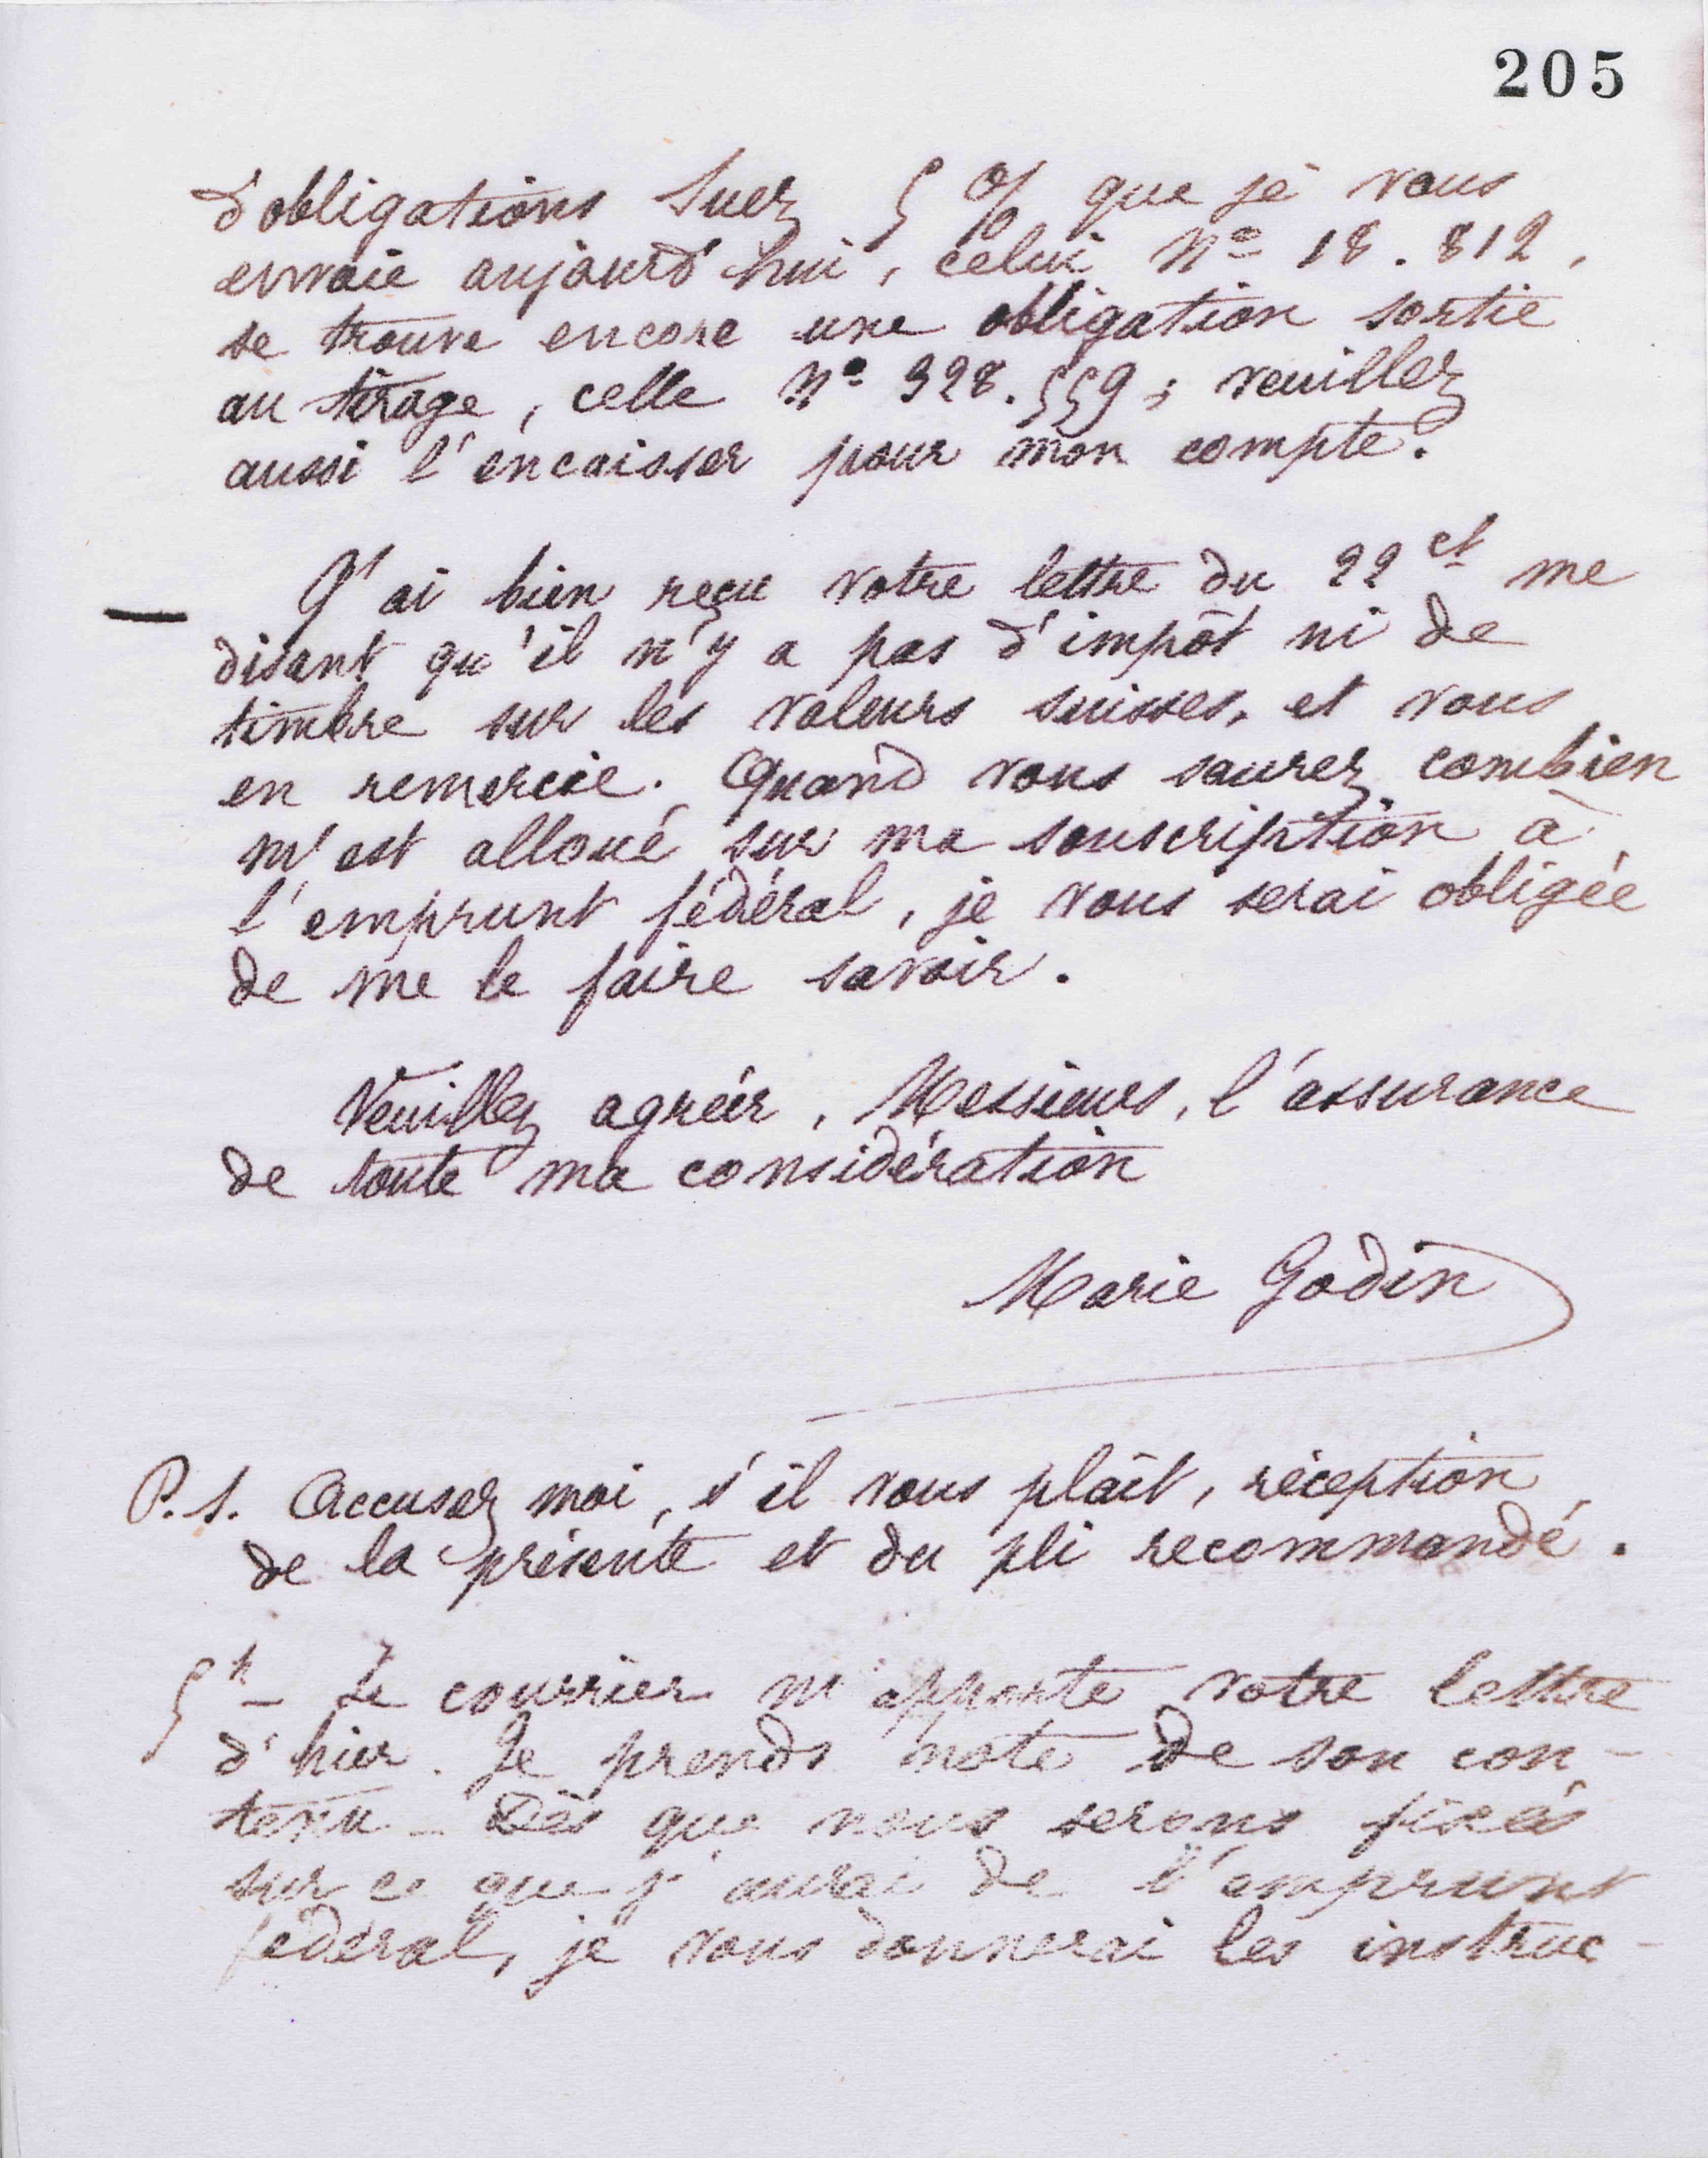 205
d'obligations Suez 5 % que je vous
envoie aujourd'hui, celui Nº 18.812,
se trouve encore une obligation sortie
au tirage, celle Nº 328.559; veuillez
aussi l'encaisser pour mon compte.
— J'ai bien reçu votre lettre du 22 ct me
disant qu'il n'y a pas d'impôt ni de
timbre sur les valeurs suisses, et vous
en remercie. Quand vous saurez combien
m'est alloué sur ma souscription à
l'emprunt fédéral, je vous serai obligée
de me le faire savoir.
Veuillez agréer, Messieurs, l'assurance
de toute ma considération
Marie Godin
P.S. Accusez moi, s'il vous plaît, réception
de la présente et du pli recommandé.
5 h — Le courrier m'apporte votre lettre
d'hier. Je prends note de son con-
tenu — Dès que nous serons fixés
sur ce que j'aurai de l'emprunt
fédéral, je vous donnerai les instruc-